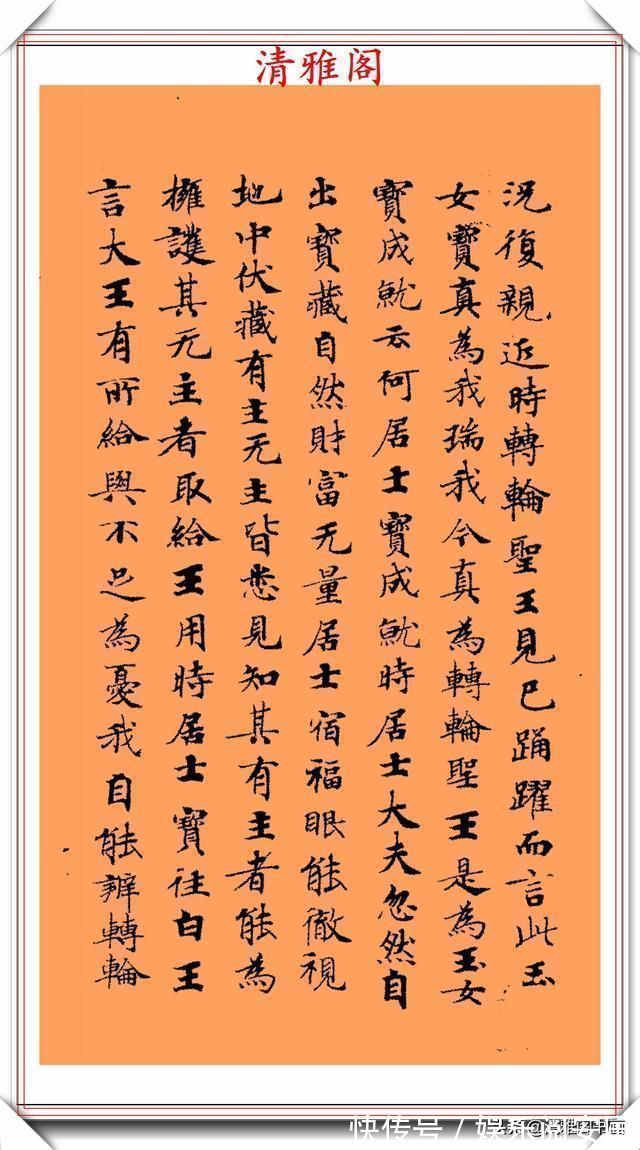 清雅阁
況復親近時轉輪聖王見已踊躍而言此玉
女寶真為我瑞我今真為轉輪聖王是為玉女
寶成就云何居士寶成就時居士大夫忽然自
出寶藏自然財富无量居士宿福眼能徹視
地中伏藏有主无主皆悉見知其有主者能為
擁護其无主者取給王用時居士寶往白王
言大王有所給與不足為憂我自能辦轉輪
快传号 / 娱乐阅安南